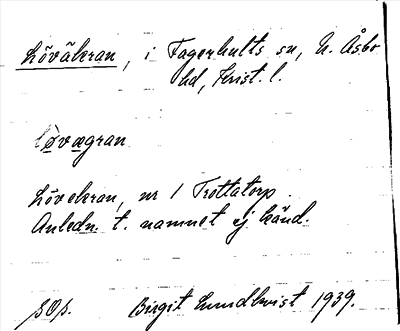 Lövåkran, i Fagerhults sn, N. Åsbo
hd, Krist. l.
løvagran
Lövekran, nr 1 Trottatorp.
Anledn. t. namnet ej känd.
Birgit Lundkvist 1939.